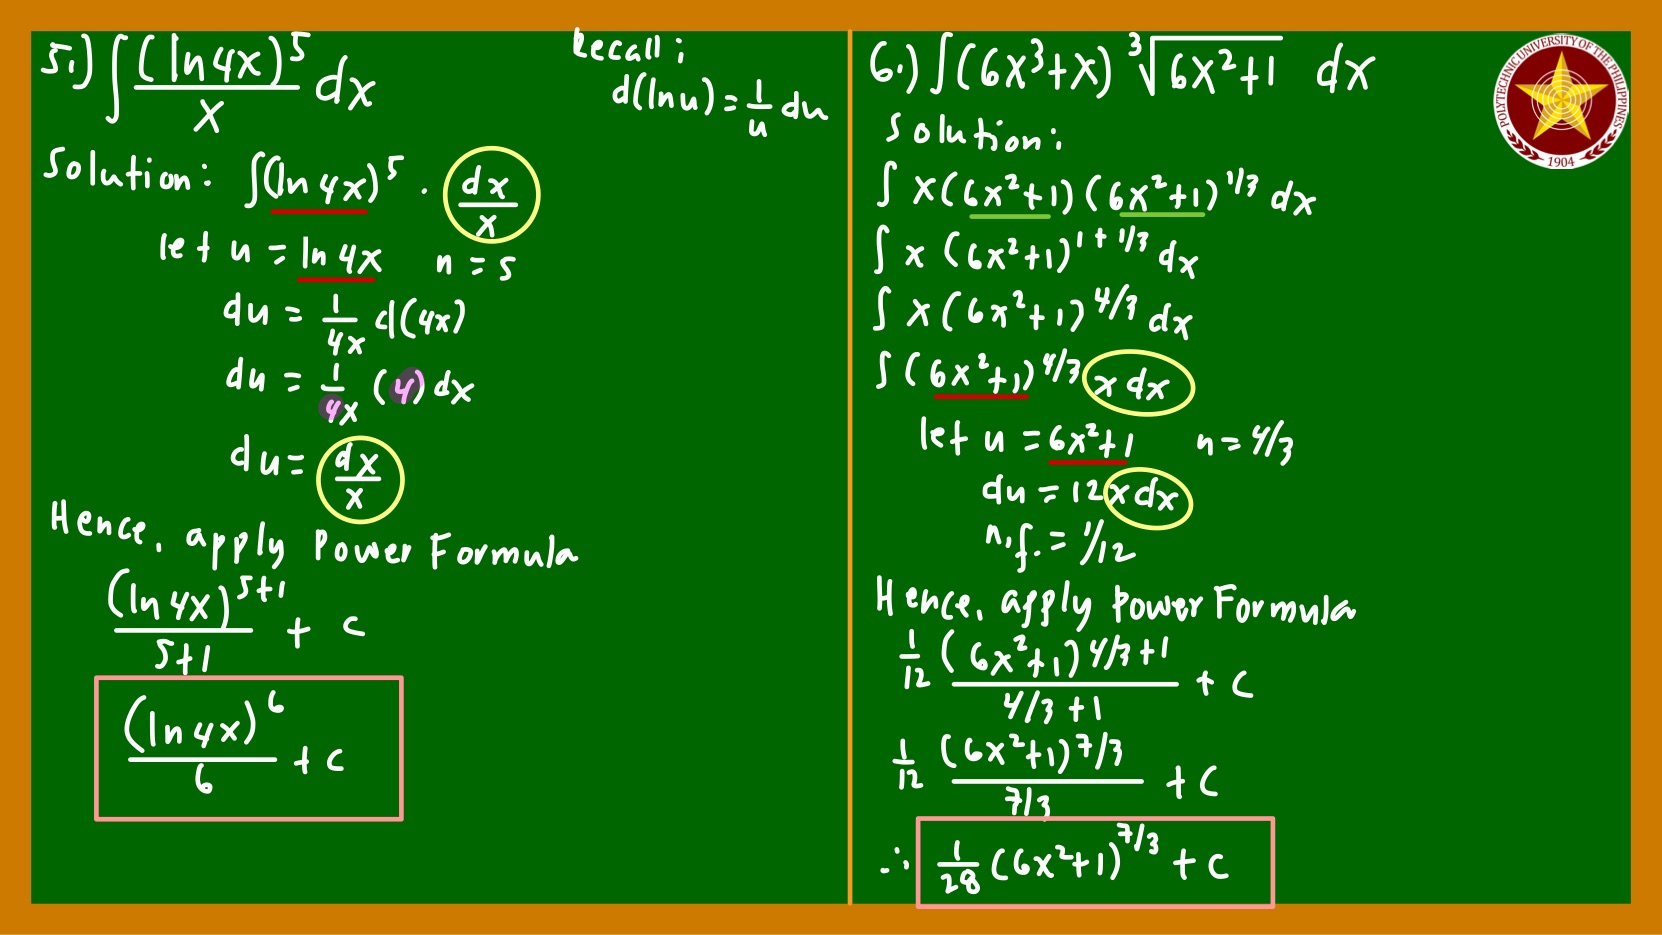 5.) ∫ (ln 4x)^5 / x dx
Recall:
d(ln u) = 1/u du
Solution: ∫(ln 4x)^5 · dx/x
let u = ln 4x n = 5
du = 1/4x d(4x)
du = 1/4x (4) dx
du = dx/x
Hence, apply Power Formula
(ln 4x)^5+1 / 5+1 + c
(ln 4x)^6 / 6 + c
6.) ∫(6x³+x) ∛6x²+1 dx
Solution:
∫ x(6x²+1)(6x²+1)^1/3 dx
∫ x (6x²+1)^1+1/3 dx
∫ x (6x²+1)^4/3 dx
∫ (6x²+1)^4/3 x dx
let u = 6x²+1 n = 4/3
du = 12 x dx
n.f. = 1/12
Hence, apply Power Formula
1/12 (6x²+1)^4/3+1 / 4/3+1 + C
1/12 (6x²+1)^7/3 / 7/3 + C
∴ 1/28 (6x²+1)^7/3 + C
POLYTECHNIC UNIVERSITY OF THE PHILIPPINES
1904